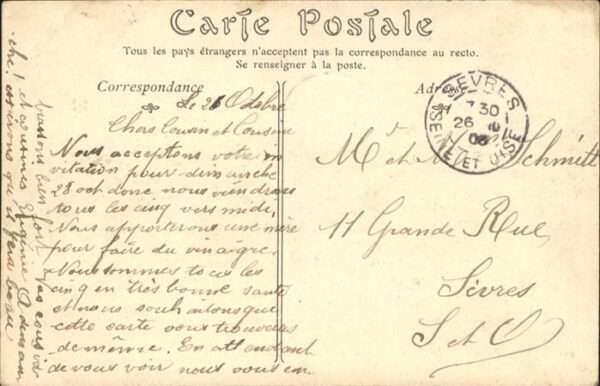 Carte Postale
Tous les pays étrangers n'acceptent pas la correspondance au recto.
Se renseigner à la poste.
Correspondance
Adresse
Le 26 Octobre
Chers Cousin et Cousine
Nous acceptons votre in
vitation pour dimanche
28 oct donc nous viendrons
tous les cinq vers midi,
Nous apporterons une mère
pour faire du vinaigre.
Nous sommes tous les
cinq en très bonne santé
et nous souhaitons que
cette carte vous trouve
de même. En attendant
de vous voir nous vous em
brassons bien fort Vos cousins
et cousines Eugénie
espérons qu'il fera beau
SEVRES
7 30
26
SEINE ET OISE
Mr et Me Schmitt
11 Grande Rue
Sèvres
S et O